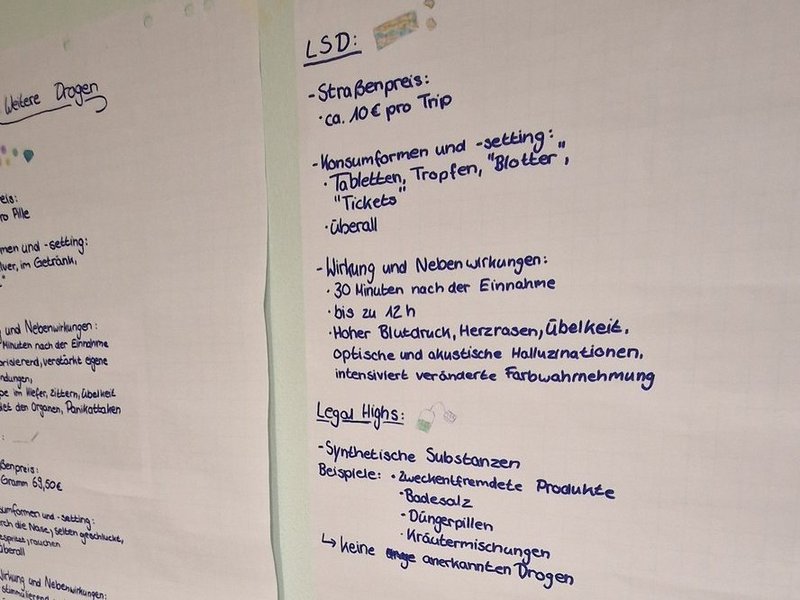 Weitere Drogen
eis:
ro Pille
men und -setting:
lver, im Getränk,
und Nebenwirkungen:
Minuten nach der Einnahme
orisierend, verstärkt eigene
ndungen,
pe im Kiefer, Zittern, Übelkeit
det den Organen, Panikattaken
:
ßenpreis:
Gramm 69,50€
sumformen und -setting:
rch die Nase, selten geschluckt,
espritzt, rauchen
überall
Wirkung und Nebenwirkungen:
stimulierend
LSD:
- Straßenpreis:
· ca. 10€ pro Trip
- Konsumformen und -setting:
· Tabletten, Tropfen, "Blotter",
"Tickets"
· überall
- Wirkung und Nebenwirkungen:
· 30 Minuten nach der Einnahme
· bis zu 12h
· Hoher Blutdruck, Herzrasen, Übelkeit,
optische und akustische Halluzinationen,
intensiviert veränderte Farbwahrnehmung
Legal Highs:
- Synthetische Substanzen
Beispiele: · Zweckentfremdete Produkte
- Badesalz
- Düngerpillen
· Kräutermischungen
↳ keine anerkannten Drogen